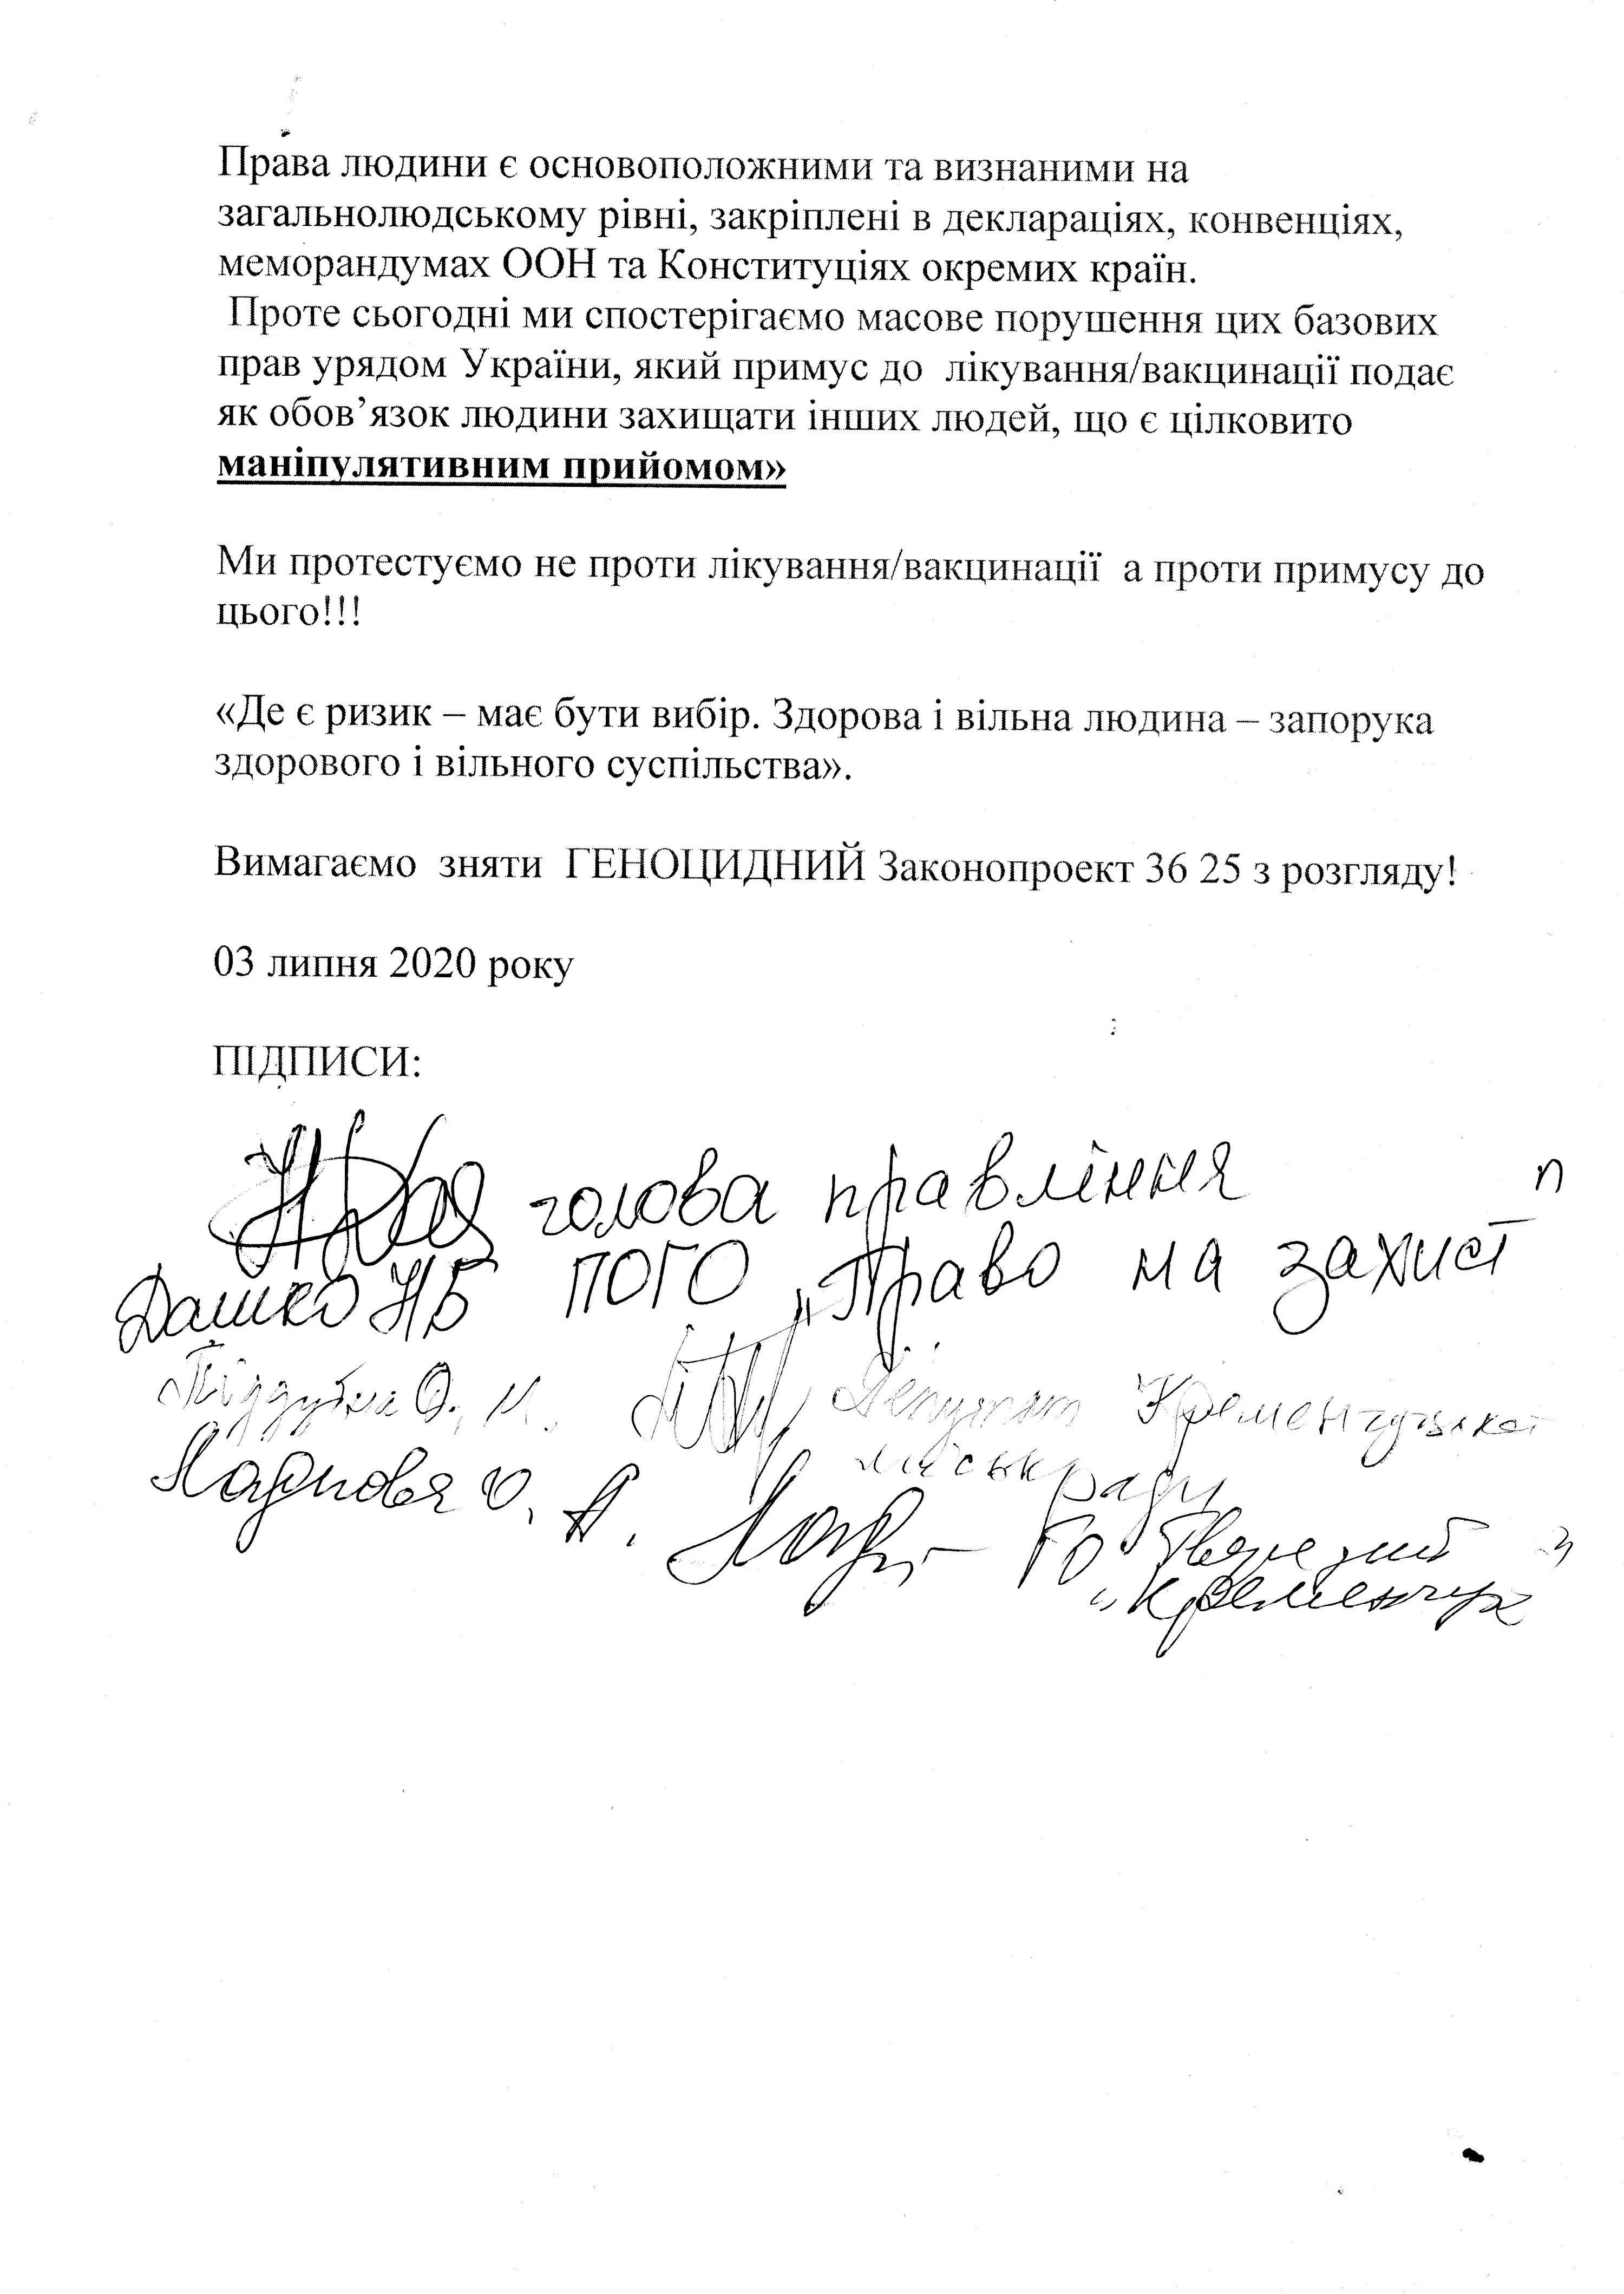 Права людини є основоположними та визнаними на
загальнолюдському рівні, закріплені в деклараціях, конвенціях,
меморандумах ООН та Конституціях окремих країн.
Проте сьогодні ми спостерігаємо масове порушення цих базових
прав урядом України, який примус до лікування/вакцинації подає
як обов’язок людини захищати інших людей, що є цілковито
маніпулятивним прийомом»
Ми протестуємо не проти лікування/вакцинації а проти примусу до
цього!!!
«Де є ризик – має бути вибір. Здорова і вільна людина – запорука
здорового і вільного суспільства».
Вимагаємо зняти ГЕНОЦИДНИЙ Законопроект 36 25 з розгляду!
03 липня 2020 року
ПІДПИСИ:
голова правління
Дашко НБ ПОГО „Право на захист"
Піддубна О. М. Депутат Кременчуцької
міськради
О. А. ГО Тверезий
"Кременчук"